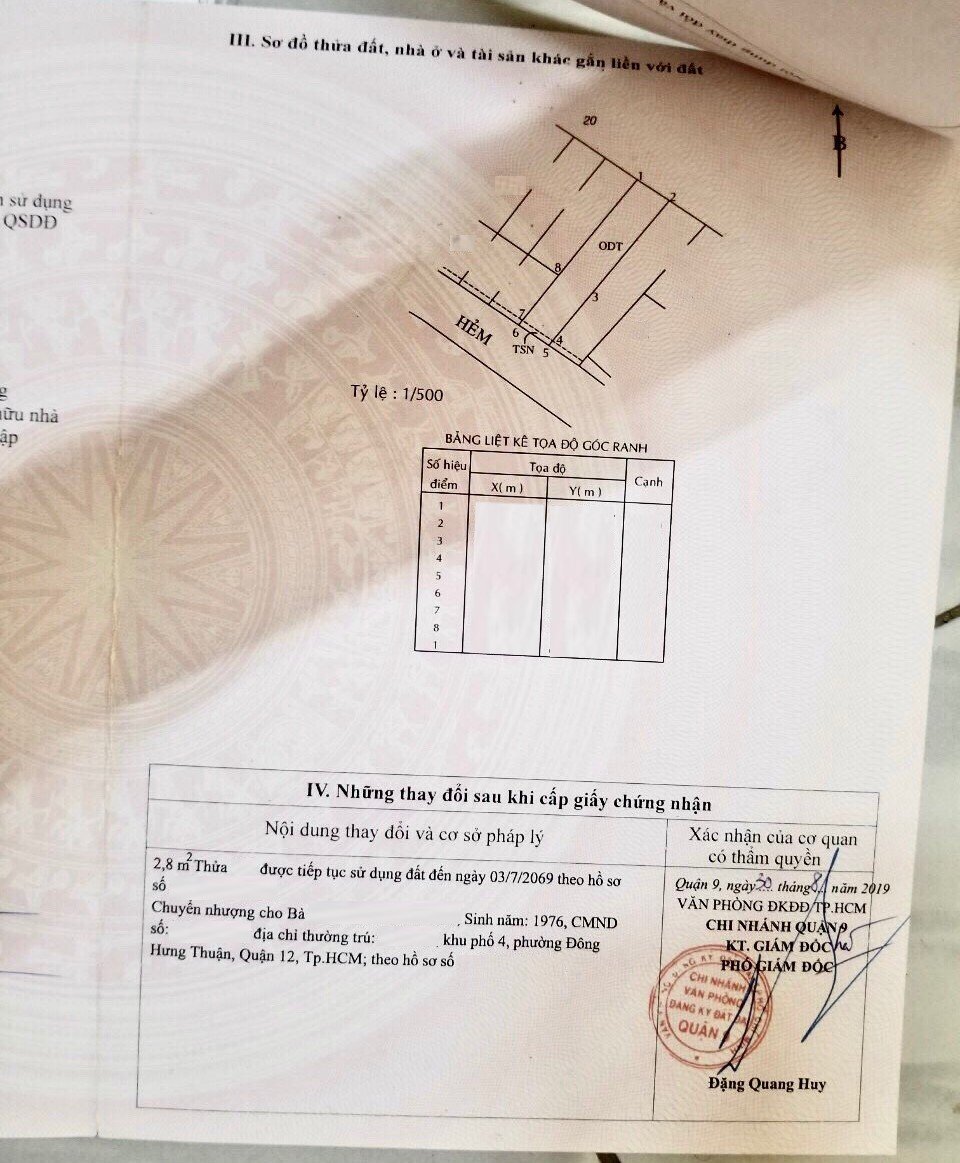 III. Sơ đồ thửa đất, nhà ở và tài sản khác gắn liền với đất
sử dụng
QSDĐ
hữu nhà
B
20
1
2
ODT
8
3
7
6
4
TSN
5
HẺM
Tỷ lệ : 1/500
BẢNG LIỆT KÊ TỌA ĐỘ GÓC RANH
Số hiệu điểm
Tọa độ
X( m )
Y( m )
Cạnh
1
2
3
4
5
6
7
8
1
IV. Những thay đổi sau khi cấp giấy chứng nhận
Nội dung thay đổi và cơ sở pháp lý
Xác nhận của cơ quan
có thẩm quyền
2,8 m2 Thửa được tiếp tục sử dụng đất đến ngày 03/7/2069 theo hồ sơ
số
Chuyển nhượng cho Bà . Sinh năm: 1976, CMND
số: địa chỉ thường trú: khu phố 4, phường Đông
Hưng Thuận, Quận 12, Tp.HCM; theo hồ sơ số
Quận 9, ngày 30 tháng 8 năm 2019
VĂN PHÒNG ĐKĐĐ TP.HCM
CHI NHÁNH QUẬN 9
KT. GIÁM ĐỐC
PHÓ GIÁM ĐỐC
CHI NHÁNH
VĂN PHÒNG
ĐĂNG KÝ ĐẤT ĐAI
QUẬN 9
Đặng Quang Huy